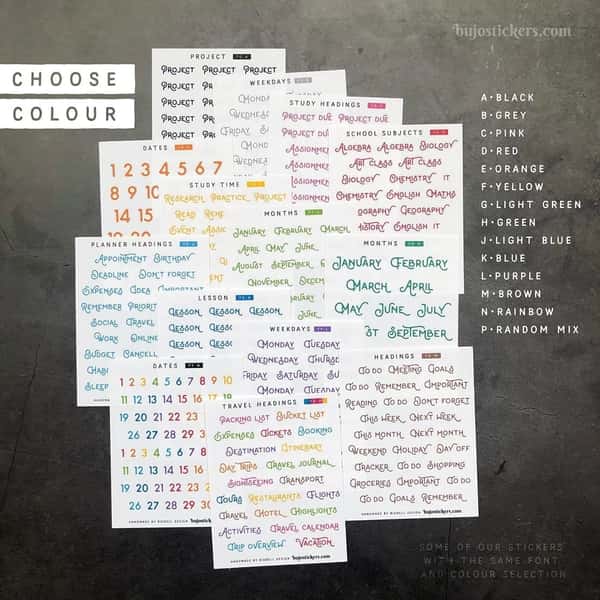 bujostickers.com
CHOOSE
COLOUR
A•BLACK
B•GREY
C•PINK
D•RED
E•ORANGE
F•YELLOW
G•LIGHT GREEN
H•GREEN
J•LIGHT BLUE
K•BLUE
L•PURPLE
M•BROWN
N•RAINBOW
P•RANDOM MIX
PROJECT
PROJECT PROJECT PROJECT
PROJECT PROJECT
PROJECT
PROJECT
WEEKDAYS
MONDAY
FRIDAY
STUDY HEADINGS
PROJECT DUE PROJECT DUE
PROJECT DUE
ASSIGNMENT
ASSIGNMENT
SCHOOL SUBJECTS
ALGEBRA ALGEBRA BIOLOGY
ART CLASS ART CLASS
BIOLOGY CHEMISTRY
CHEMISTRY ENGLISH MATHS
GEOGRAPHY GEOGRAPHY
HISTORY ENGLISH IT
DATES
1 2 3 4 5 6 7
8 9 10
14 15
STUDY TIME
RESEARCH PRACTICE PROJECT
READ
EVENT
MONTHS
JANUARY FEBRUARY MARCH
APRIL MAY JUNE
AUGUST SEPTEMBER
MONTHS
JANUARY FEBRUARY
MARCH APRIL
MAY JUNE JULY
SEPTEMBER
PLANNER HEADINGS
APPOINTMENT BIRTHDAY
DEADLINE DON'T FORGET
EXPENSES IDEA IMPORTANT
REMEMBER
SOCIAL TRAVEL
WORK ONLINE
BUDGET
SLEEP
LESSON
LESSON LESSON LESSON
LESSON LESSON LESSON
LESSON
WEEKDAYS
MONDAY TUESDAY
WEDNESDAY
FRIDAY SATURDAY
MONDAY TUESDAY
DATES
1 2 3 4 5 6 7 8 9 10
11 12 13 14 15 16 17 18
19 20 21 22 23 24 25
26 27 28 29 30 31
HEADINGS
TO DO MEETING GOALS
TO DO REMEMBER IMPORTANT
READING TO DO DON'T FORGET
THIS WEEK NEXT WEEK
THIS MONTH NEXT MONTH
WEEKEND HOLIDAY DAY OFF
TRACKER TO DO SHOPPING
GROCERIES IMPORTANT TO DO
TO DO GOALS REMEMBER
HANDMADE BY BIGBELL DESIGN
TRAVEL HEADINGS
PACKING LIST BUCKET LIST
EXPENSES TICKETS BOOKING
DESTINATION ITINERARY
DAY TRIPS TRAVEL JOURNAL
SIGHTSEEING TRANSPORT
TOURS RESTAURANTS FLIGHTS
TRAVEL HOTEL HIGHLIGHTS
ACTIVITIES TRAVEL CALENDAR
TRIP OVERVIEW VACATION
bujostickers.com
SOME OF OUR STICKERS
WITH THE SAME FONT
AND COLOUR SELECTION